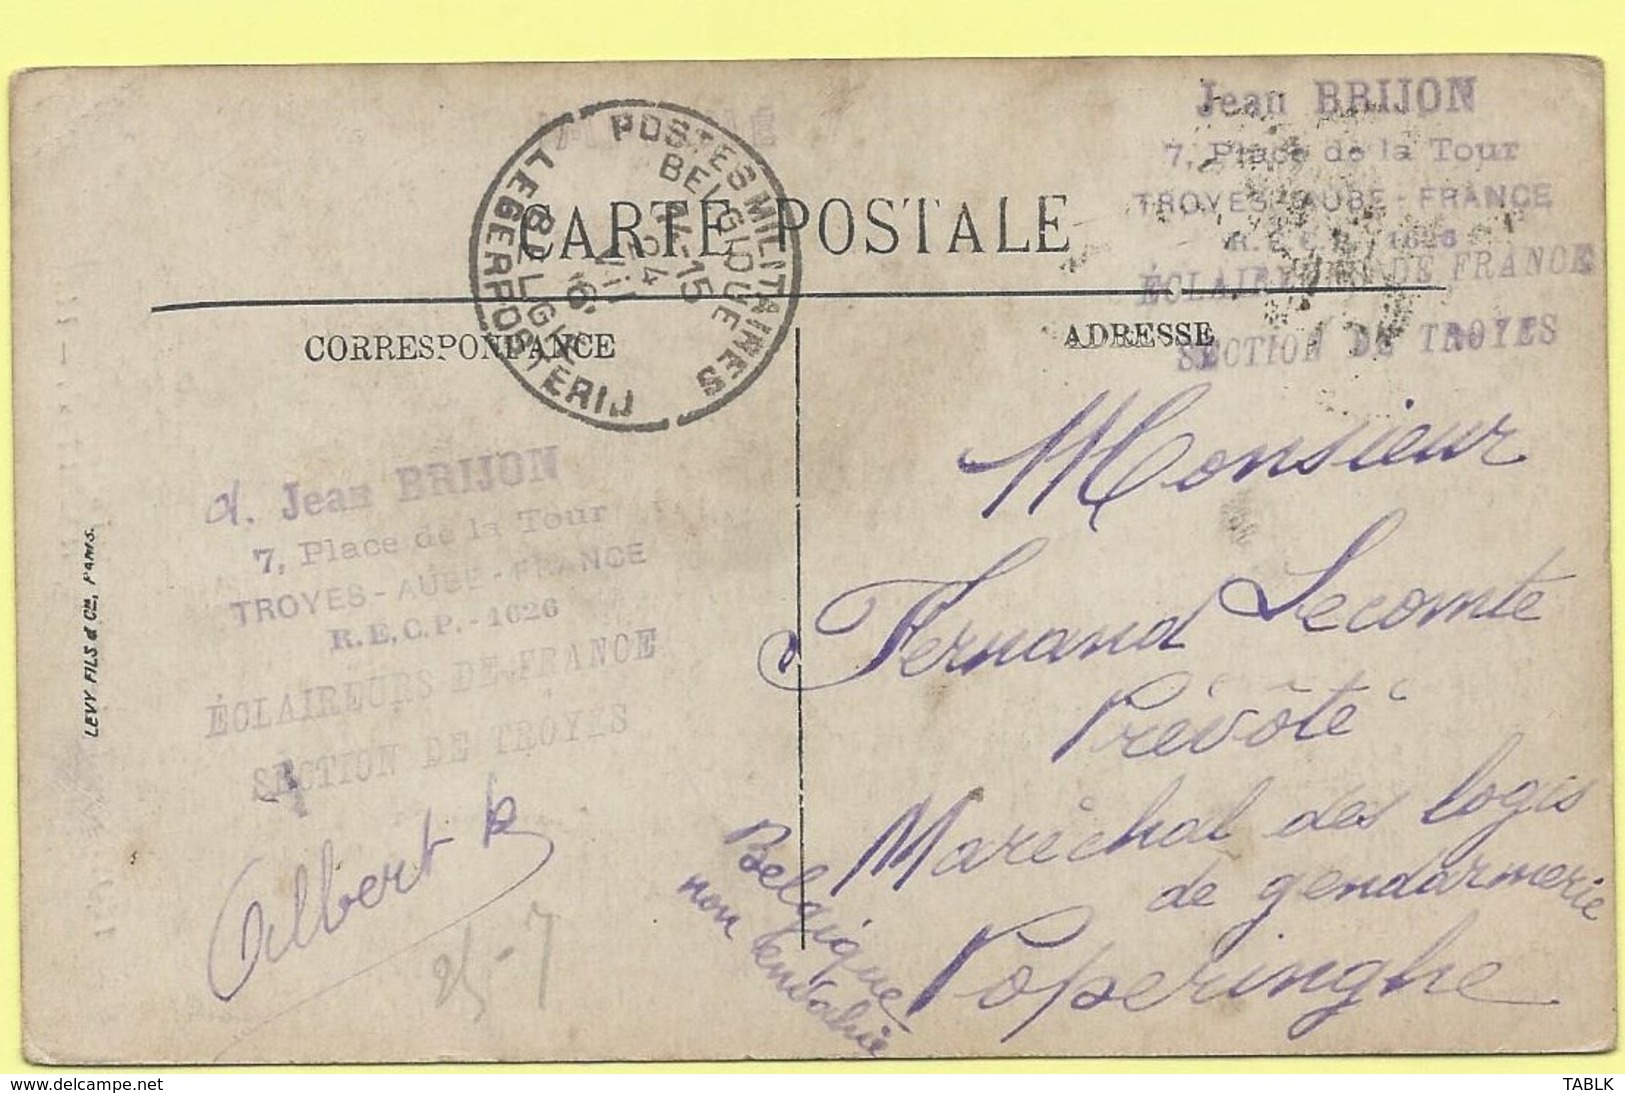 Jean BRIJON
7, Place de la Tour
TROYES-AUBE-FRANCE
R.E.C.P. - 1626
ÉCLAIREURS DE FRANCE
SECTION DE TROYES
CARTE POSTALE
POSTES MILITAIRES
BELGIQUE
14-15
24
VII
16
BELGIË
LEGERPOSTERIJ
CORRESPONDANCE
ADRESSE
d. Jean BRIJON
7, Place de la Tour
TROYES-AUBE-FRANCE
R.E.C.P.-1626
ÉCLAIREURS DE FRANCE
SECTION DE TROYES
Albert
25-7
LEVY FILS & CIE, PARIS.
Monsieur
Fernand Lecomte
Prévôté
Maréchal des logis
de gendarmerie
Poperinghe
Belgique
non envahie
TABLK
www.delcampe.net